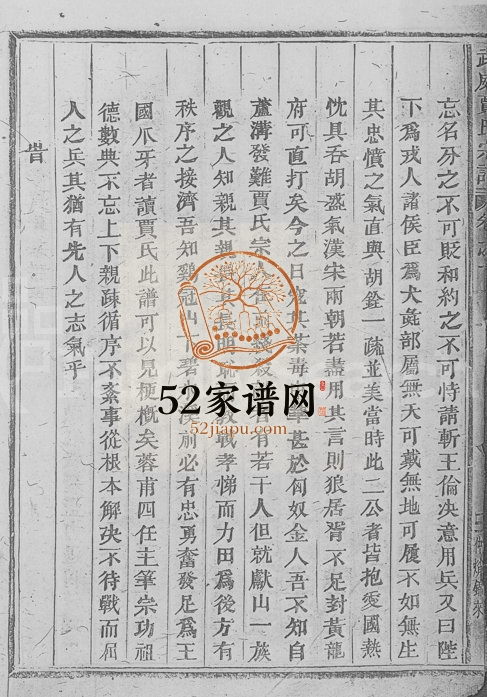 武威賈氏宗譜
忘名分之不可貶和約之不可恃請斬王倫决意用兵又曰陛
下爲戎人諸侯臣爲犬彘部屬無天可戴無地可履不如無生
其忠憤之气直與胡銓一疏並美當時此二公者皆抱愛國熱
忱具吞胡盛氣漢宋兩朝若盡用其言則狼居胥不足封黃龍
府可直打矣今之日寇其荼毒甚於匈奴金人吾不知自
蘆溝發難賈氏宗人有若干人但就獻山一族
觀之人知親其親戰孝悌而力田爲後方有
秩序之接濟吾知鷄冠山下前必有忠勇奮發足爲王
國爪牙者讀賈氏此譜可以見梗概矣蓉甫四任主筆宗功祖
德數典不忘上下親疎循序不紊事從根本解决不待戰而屈
人之兵其猶有先人之志氣乎
旹
52家谱网
52jiapu.com